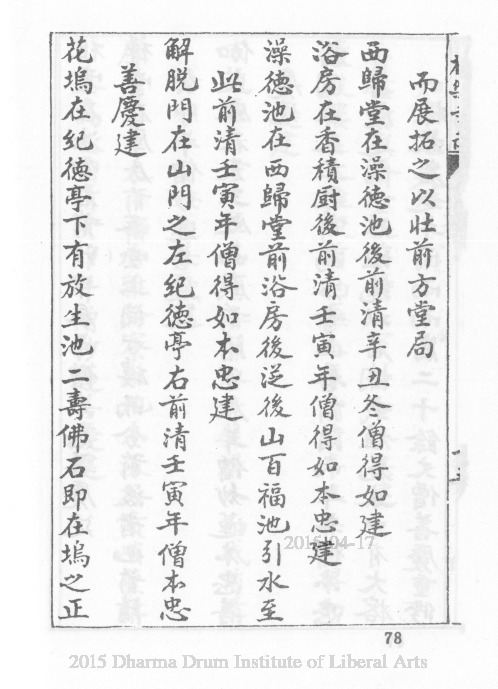 而展拓之以壯前方堂局
西歸堂在澡德池後前清辛丑冬僧得如建
浴房在香積厨後前清壬寅年僧得如本忠建
澡德池在西歸堂前浴房後從後山百福池引水至
此前清壬寅年僧得如本忠建
解脱門在山門之左紀德亭右前清壬寅年僧本忠
善慶建
花塢在紀德亭下有放生池二壽佛石即在塢之正
2016-04-17
78
2015 Dharma Drum Institute of Liberal Arts